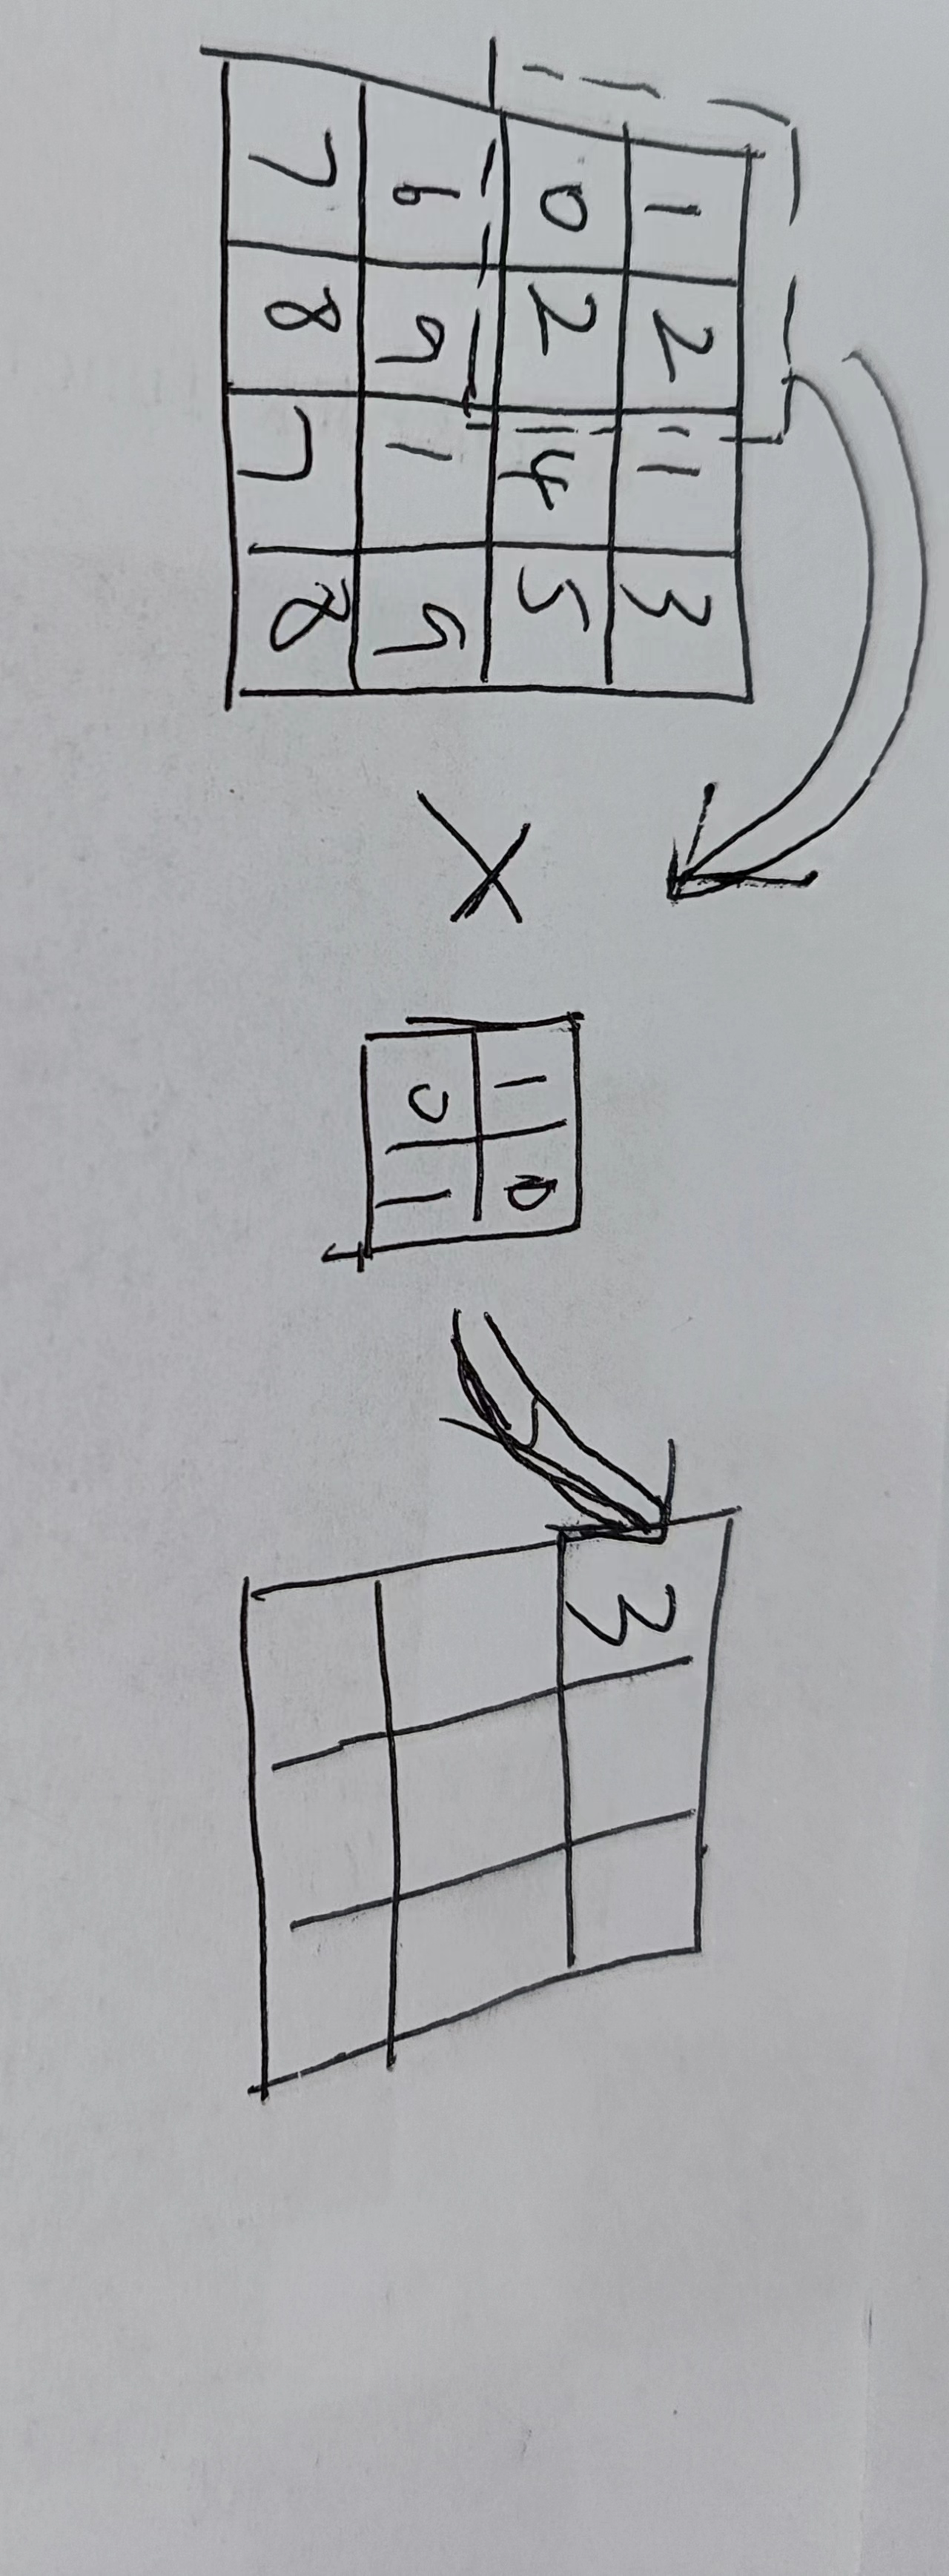 1 2 1 3
0 2 4 5
6 9 1 9
7 8 7 8
×
1 0
0 1
3